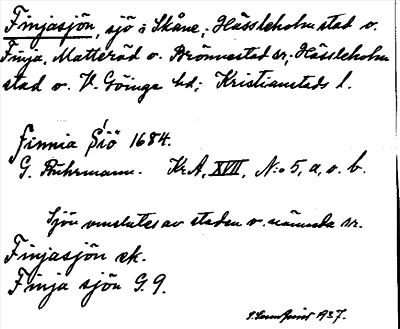 Finjasjön, sjö i Skåne; Hässleholms stad o.
Finja, Matteröd o. Brönnestad sr; Hässleholms
stad o. V. Göinge hd; Kristianstads l.
finnia Siö 1684.
G. Buhrmann. KrA, XVII, N:o 5, a, o. b.
Sjön omslutes av staden o. nämnda sr.
Finjasjön ek.
Finja sjön G. 9.
1937.